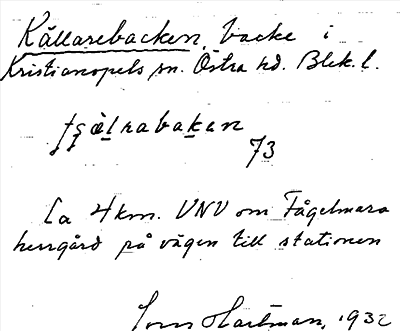 Källarebacken, backe i
Kristianopels sn. Östra hd. Blek. l.
73
Ca 4 km. VNV om Fågelmara
herrgård på vägen till stationen
Hartman, 1932